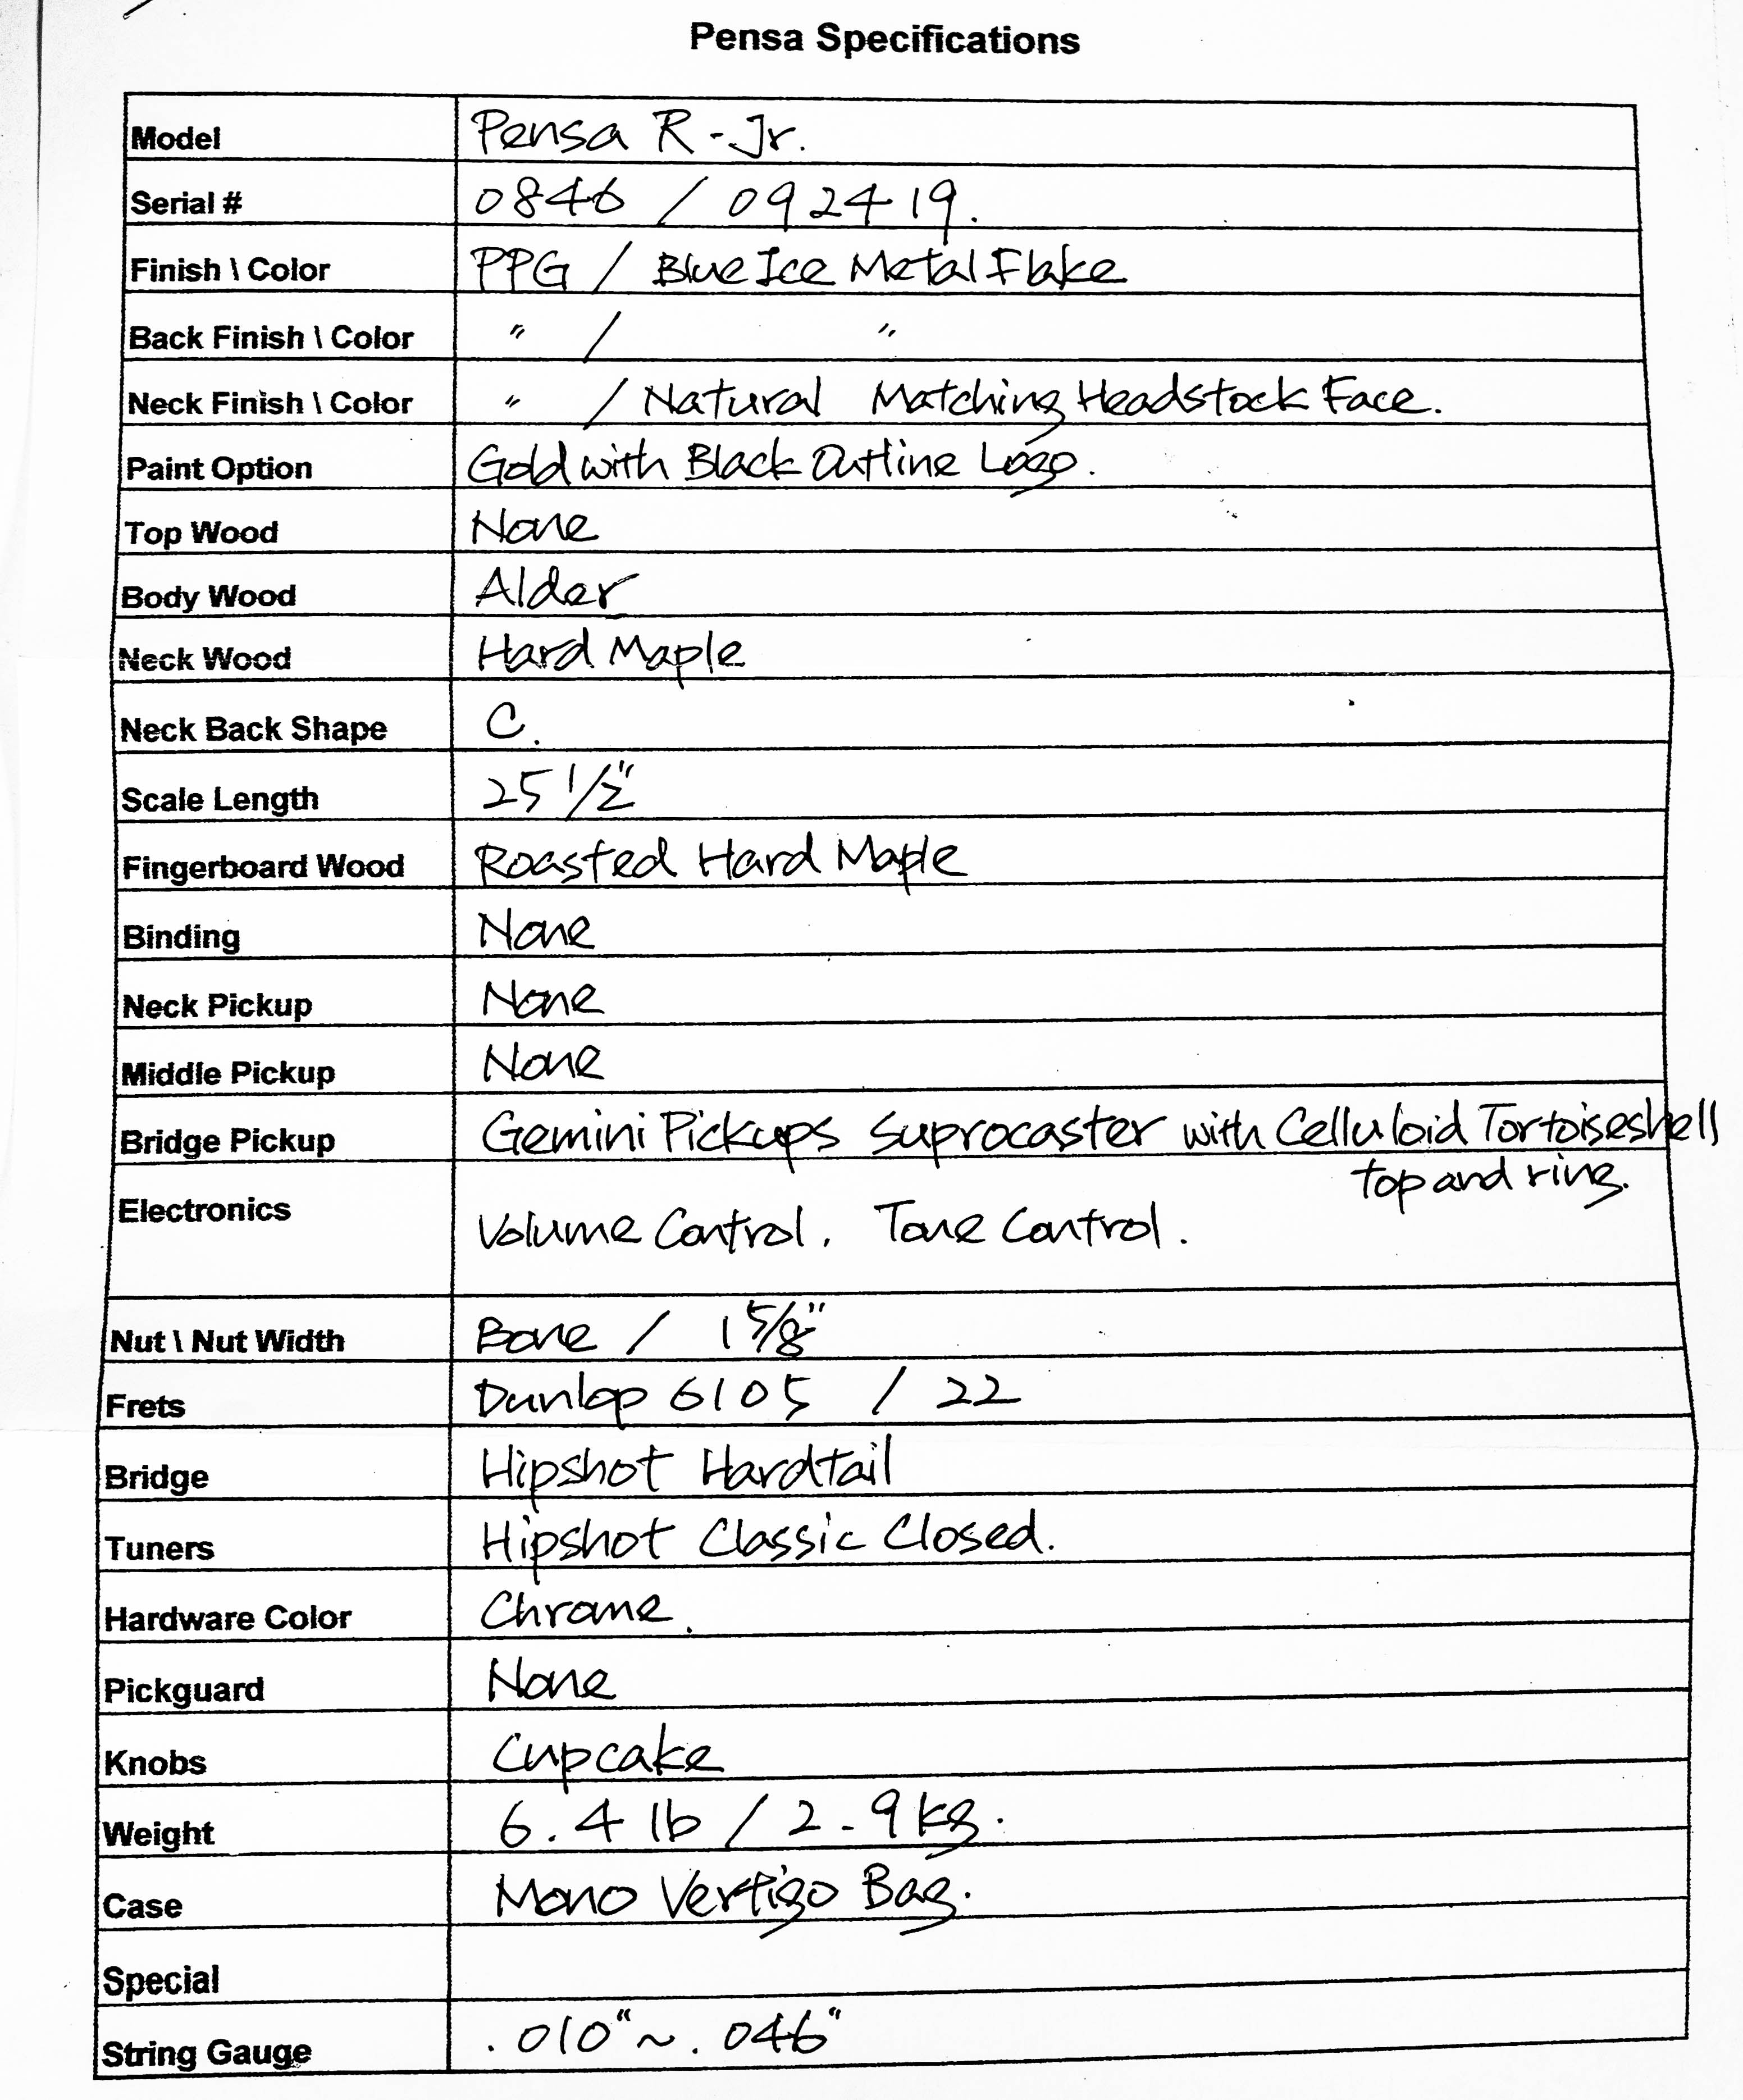 Pensa Specifications
Model Pensa R-Jr.
Serial # 0846 / 092419.
Finish \ Color PPG / Blue Ice Metal Flake
Back Finish \ Color " / "
Neck Finish \ Color " / Natural Matching Headstock Face.
Paint Option Gold with Black Outline Logo.
Top Wood None
Body Wood Alder
Neck Wood Hard Maple
Neck Back Shape C.
Scale Length 25 1/2"
Fingerboard Wood Roasted Hard Maple
Binding None
Neck Pickup None
Middle Pickup None
Bridge Pickup Gemini Pickups Suprocaster with Celluloid Tortoiseshell
top and ring.
Electronics Volume Control. Tone Control.
Nut \ Nut Width Bone / 1 5/8"
Frets Dunlop 6105 / 22
Bridge Hipshot Hardtail
Tuners Hipshot Classic Closed.
Hardware Color Chrome.
Pickguard None
Knobs Cupcake
Weight 6.4 lb / 2.9 kg.
Case Mono Vertigo Bag.
Special
String Gauge .010" ~ .046"